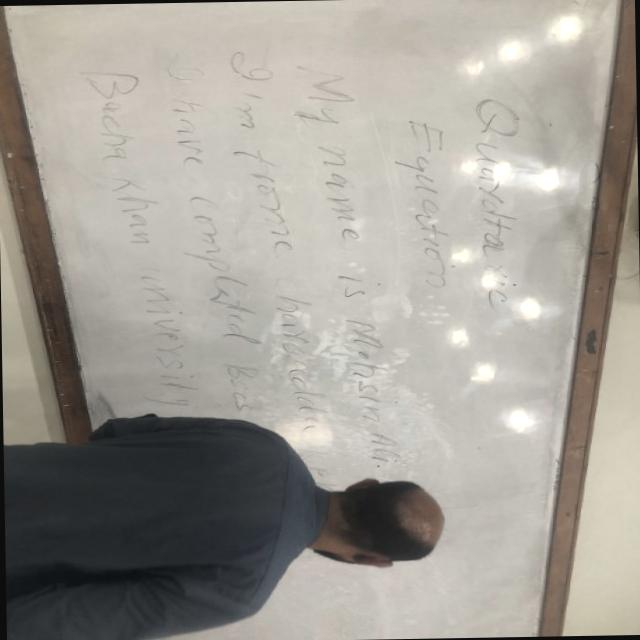 Quardtatic
Equation
My name is Mohsin Ali
I'm from
I have completed Bs
Bacha Khan university